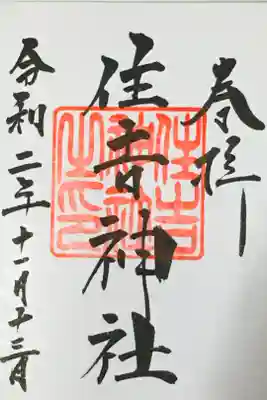 奉拝
住吉神社
令和二年十一月十三日
住吉
神社
之印